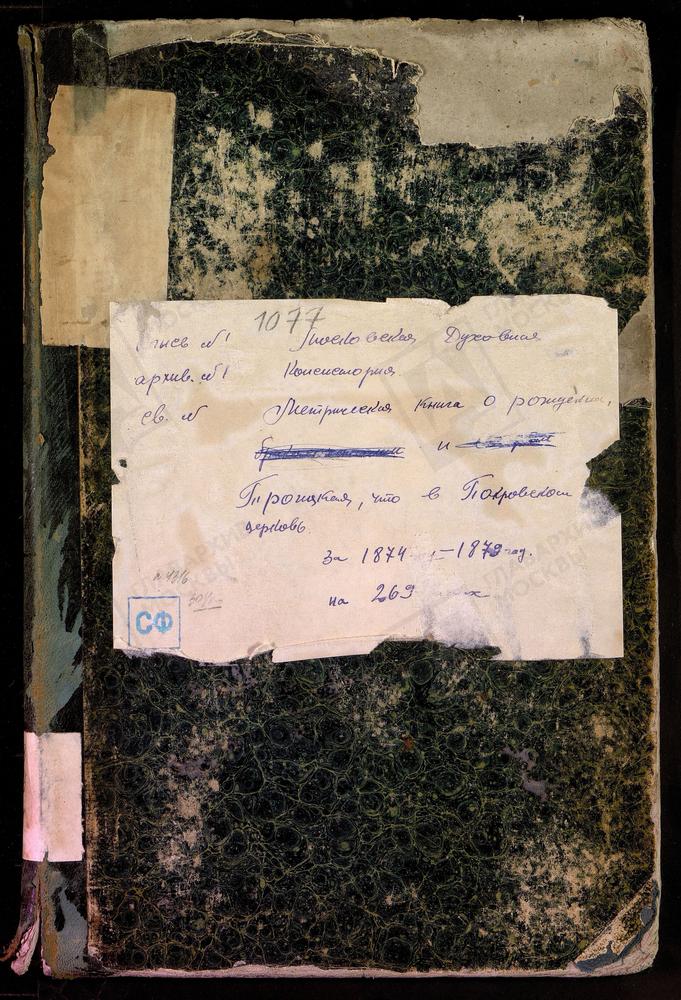 1077
опись №1 Московская Духовная
архив. №1 Консистория
св. № Метрическая книга о рождении,
и
Троицкая, что в Покровском
церковь.
за 1874 – 1879 год.
на 269
СФ